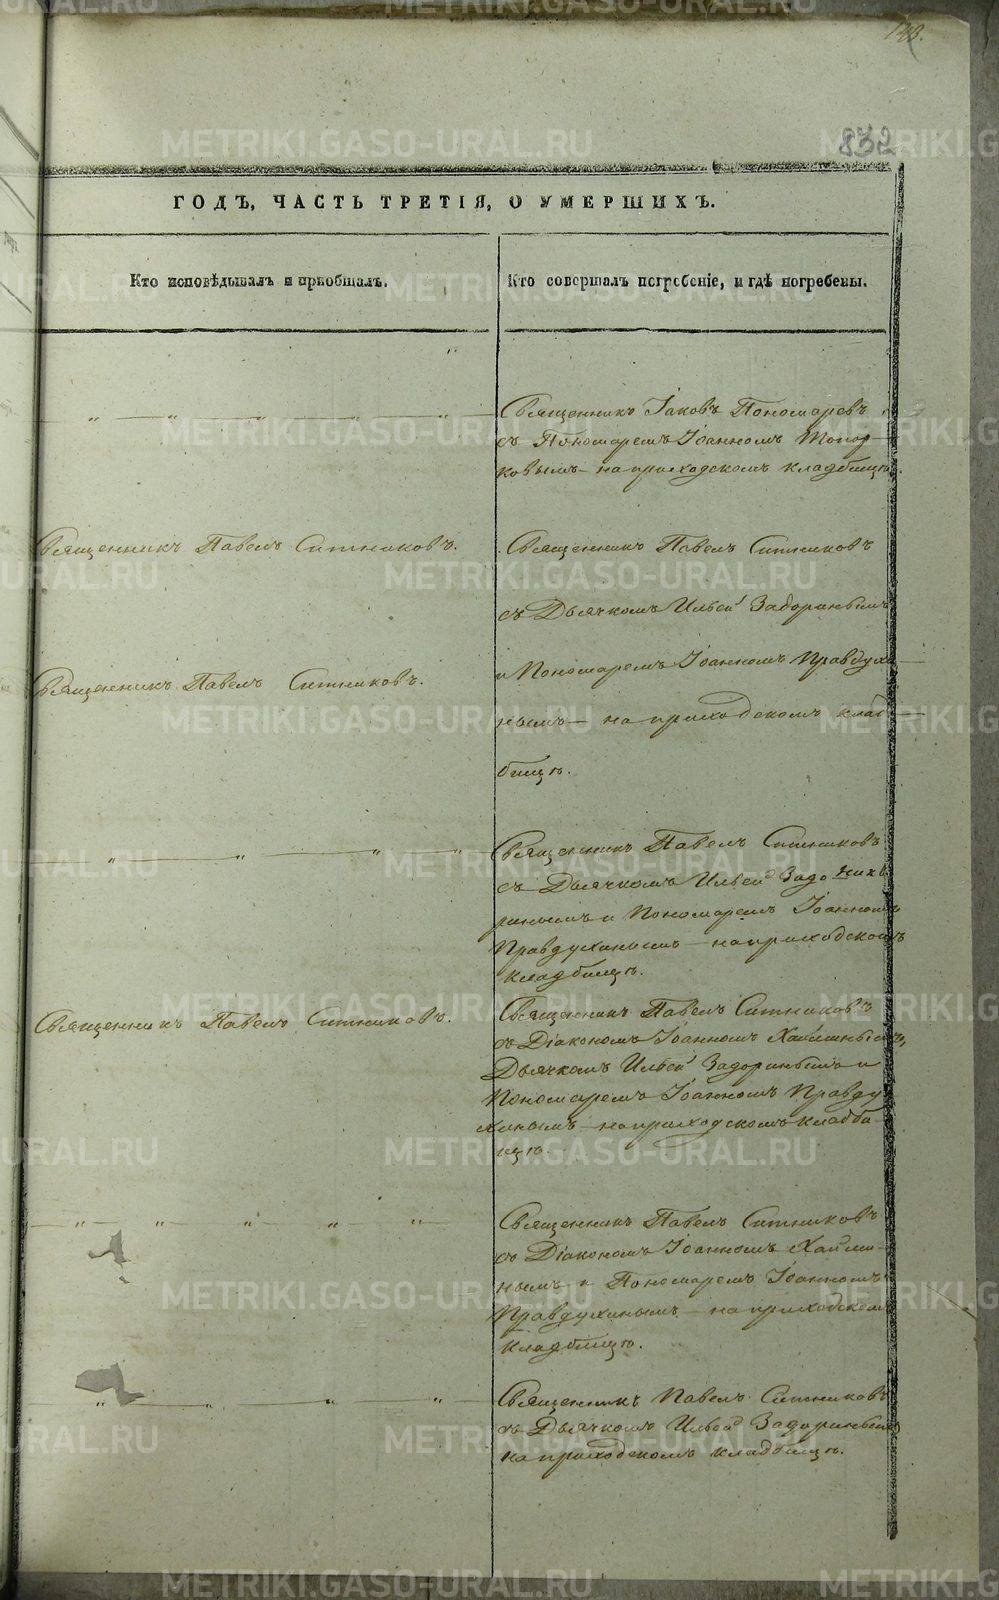 148.
832
ГОДЪ, ЧАСТЬ ТРЕТІЯ, О УМЕРШИХЪ.
Кто исповѣдывалъ и пріобщалъ.
Кто совершалъ погребеніе, и гдѣ погребены.
Священникъ Іаковъ Пономаревъ
съ Пономаремъ Іоанномъ Топор-
ковымъ – на приходскомъ кладбищѣ.
Священникъ Павелъ Ситниковъ.
Священникъ Павелъ Ситниковъ
съ Дьячкомъ Ильей Задоринымъ
и Пономаремъ Іоанномъ Правдухи-
Священникъ Павелъ Ситниковъ.
нымъ – на приходскомъ клад-
бищѣ.
Священникъ Павелъ Ситниковъ
съ Дьячкомъ Ильей Задо
ринымъ и Пономаремъ Іоанномъ
Правдухинымъ – на приходскомъ
кладбищѣ.
Священникъ Павелъ Ситниковъ.
Священникъ Павелъ Ситниковъ
съ Діакономъ Іоанномъ Хайминымъ,
Дьячкомъ Ильей Задоринымъ и
Пономаремъ Іоанномъ Правду-
хинымъ – на приходскомъ кладби-
щѣ.
Священникъ Павелъ Ситниковъ
съ Діакономъ Іоанномъ Хайми-
нымъ и Пономаремъ Іоанномъ
Правдухинымъ – на приходскомъ
кладбищѣ.
Священникъ Павелъ Ситниковъ
съ Дьячкомъ Ильей Задоринымъ
на приходскомъ кладбищѣ.
METRIKI.GASO-URAL.RU